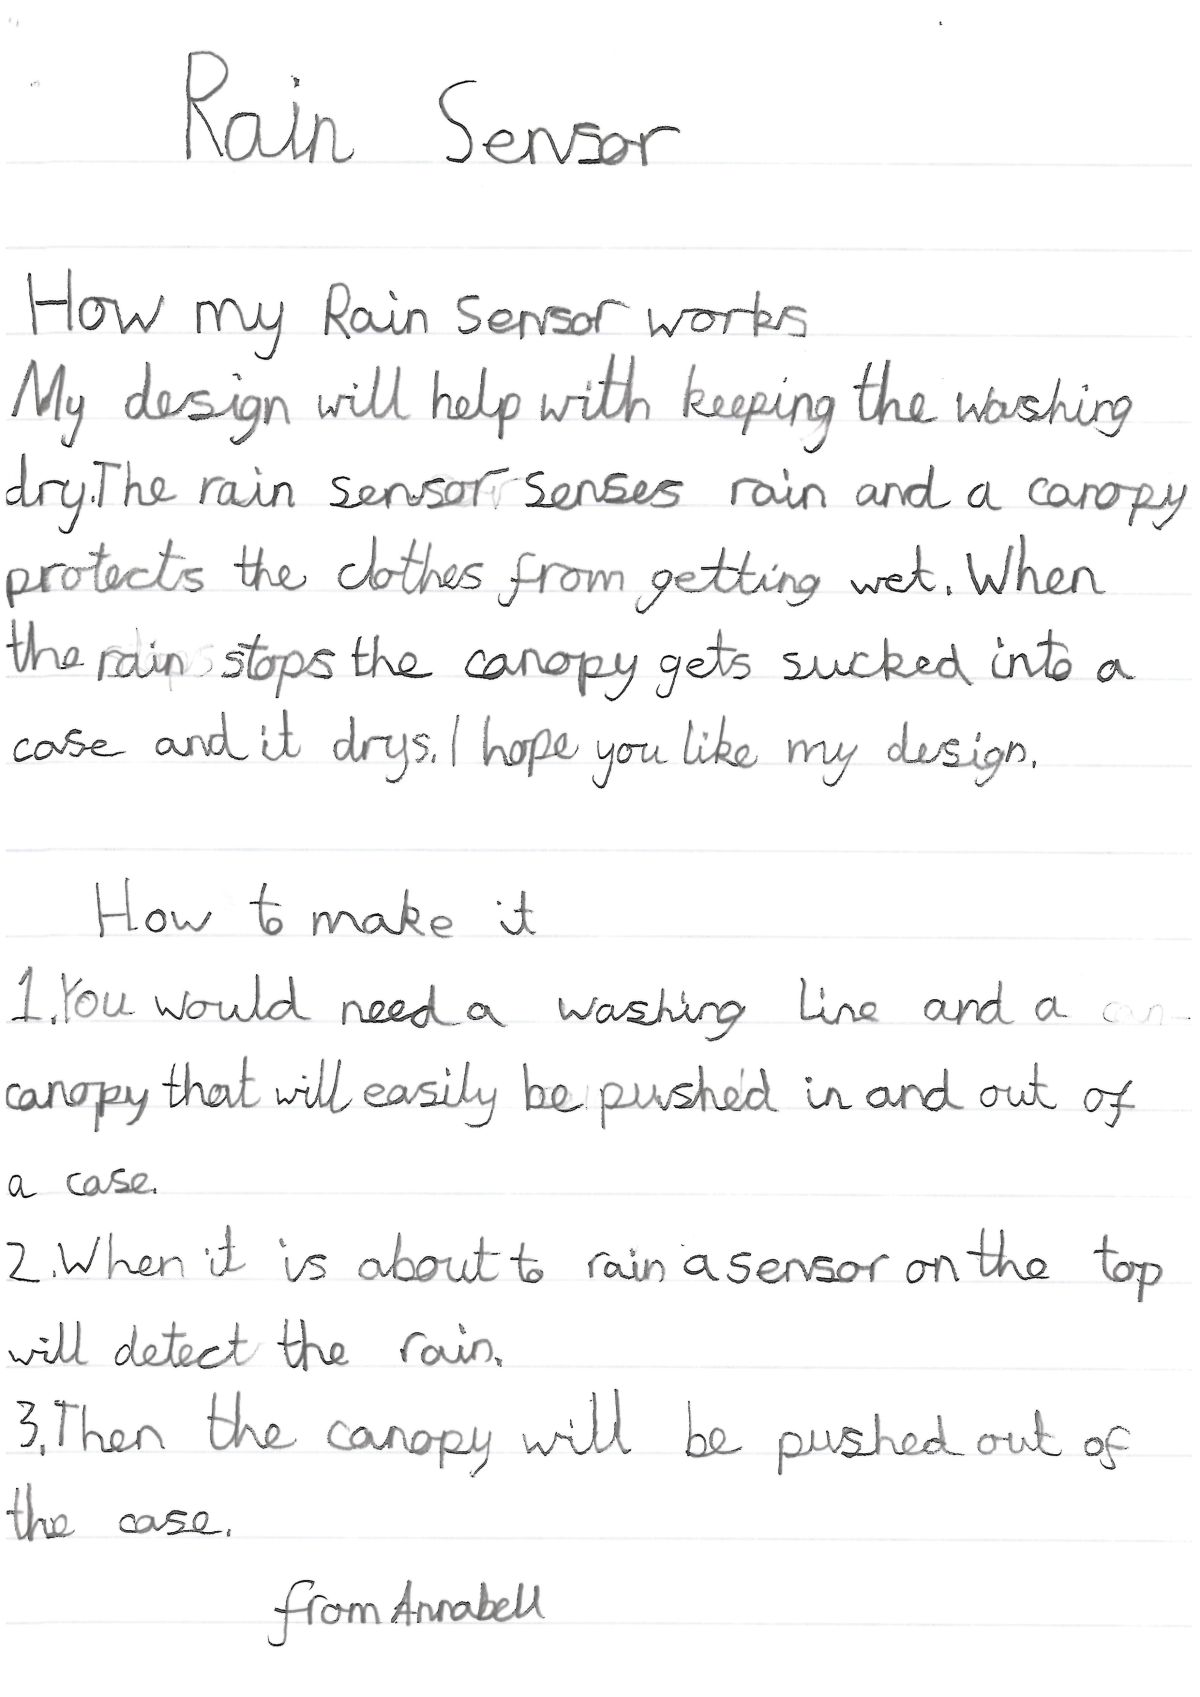 Rain Sensor
How my Rain Sensor works
My design will help with keeping the washing
dry.The rain sensor senses rain and a canopy
protects the clothes from getting wet. When
the rain stops the canopy gets sucked into a
case and it drys. I hope you like my design.
How to make it
1.You would need a washing line and a
canopy that will easily be pushed in and out of
a case.
2.When it is about to rain a sensor on the top
will detect the rain.
3.Then the canopy will be pushed out of
the case.
from Annabell